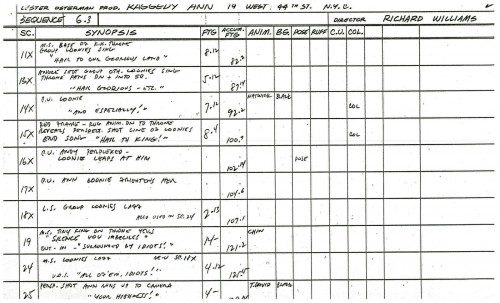 LESTER OSTERMAN PROD. RAGGEDY ANN 19 WEST. 44TH ST. N.Y.C.
SEQUENCE 6.3 DIRECTOR RICHARD WILLIAMS
SC. SYNOPSIS FTG ACCUM. FTG ANIM. BG. POSE RUFF C.U. COL.
11X M.S. BASE OF K.K. THRONE
GROUP LOONIES SING 8.12
"HAIL TO OUR GLORIOUS LAND" 82.2
13X GROUP OTH. LOONIES SING 5.12
THRONE PANS DN + INTO SC.
"HAIL GLORIOUS - ETC" 87.14
14X C.U. LOONIE 7.12
"AND ESPECIALLY!" 92.2 COL
15X THRONE 8.4
REVEALS SHOT LINE OF LOONIES COL
END SONG "HAIL TO KING!" 100.9
16X C.U. ANDY PERPLEXED - POSE
LOONIE LEAPS AT HIM 102.14
17X C.U. ANN LOONIE FRIGHTENS HER 104.6
18X L.S. GROUP LOONIES LAFF 2.13
ALSO USED IN SC. 24 107.1
19 M.S. TINY KING ON THRONE YELLS 14-
"SILENCE YOU IMBECILES"
CUT-IN - "SURROUNDED BY IDIOTS!" 121.2
24 M.S. LOONIES LAFF SC. 18X 4.12
V.O.S. "ALL OF 'EM, IDIOTS!" 125.
25 SHOT ANN RUNS UP TO CAMERA 4-
"YOUR HIGHNESS!"